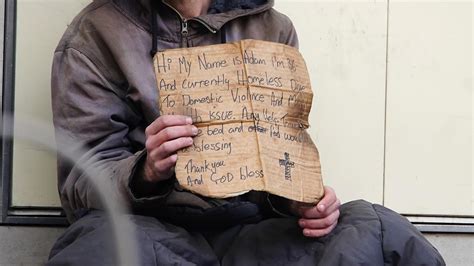 Hi My Name is Adam I'm 3
And Currently Homeless Due
To Domestic Violence And M
th issue. Any Help T
e bed and food would
blessing
Thankyou
And GOD bless